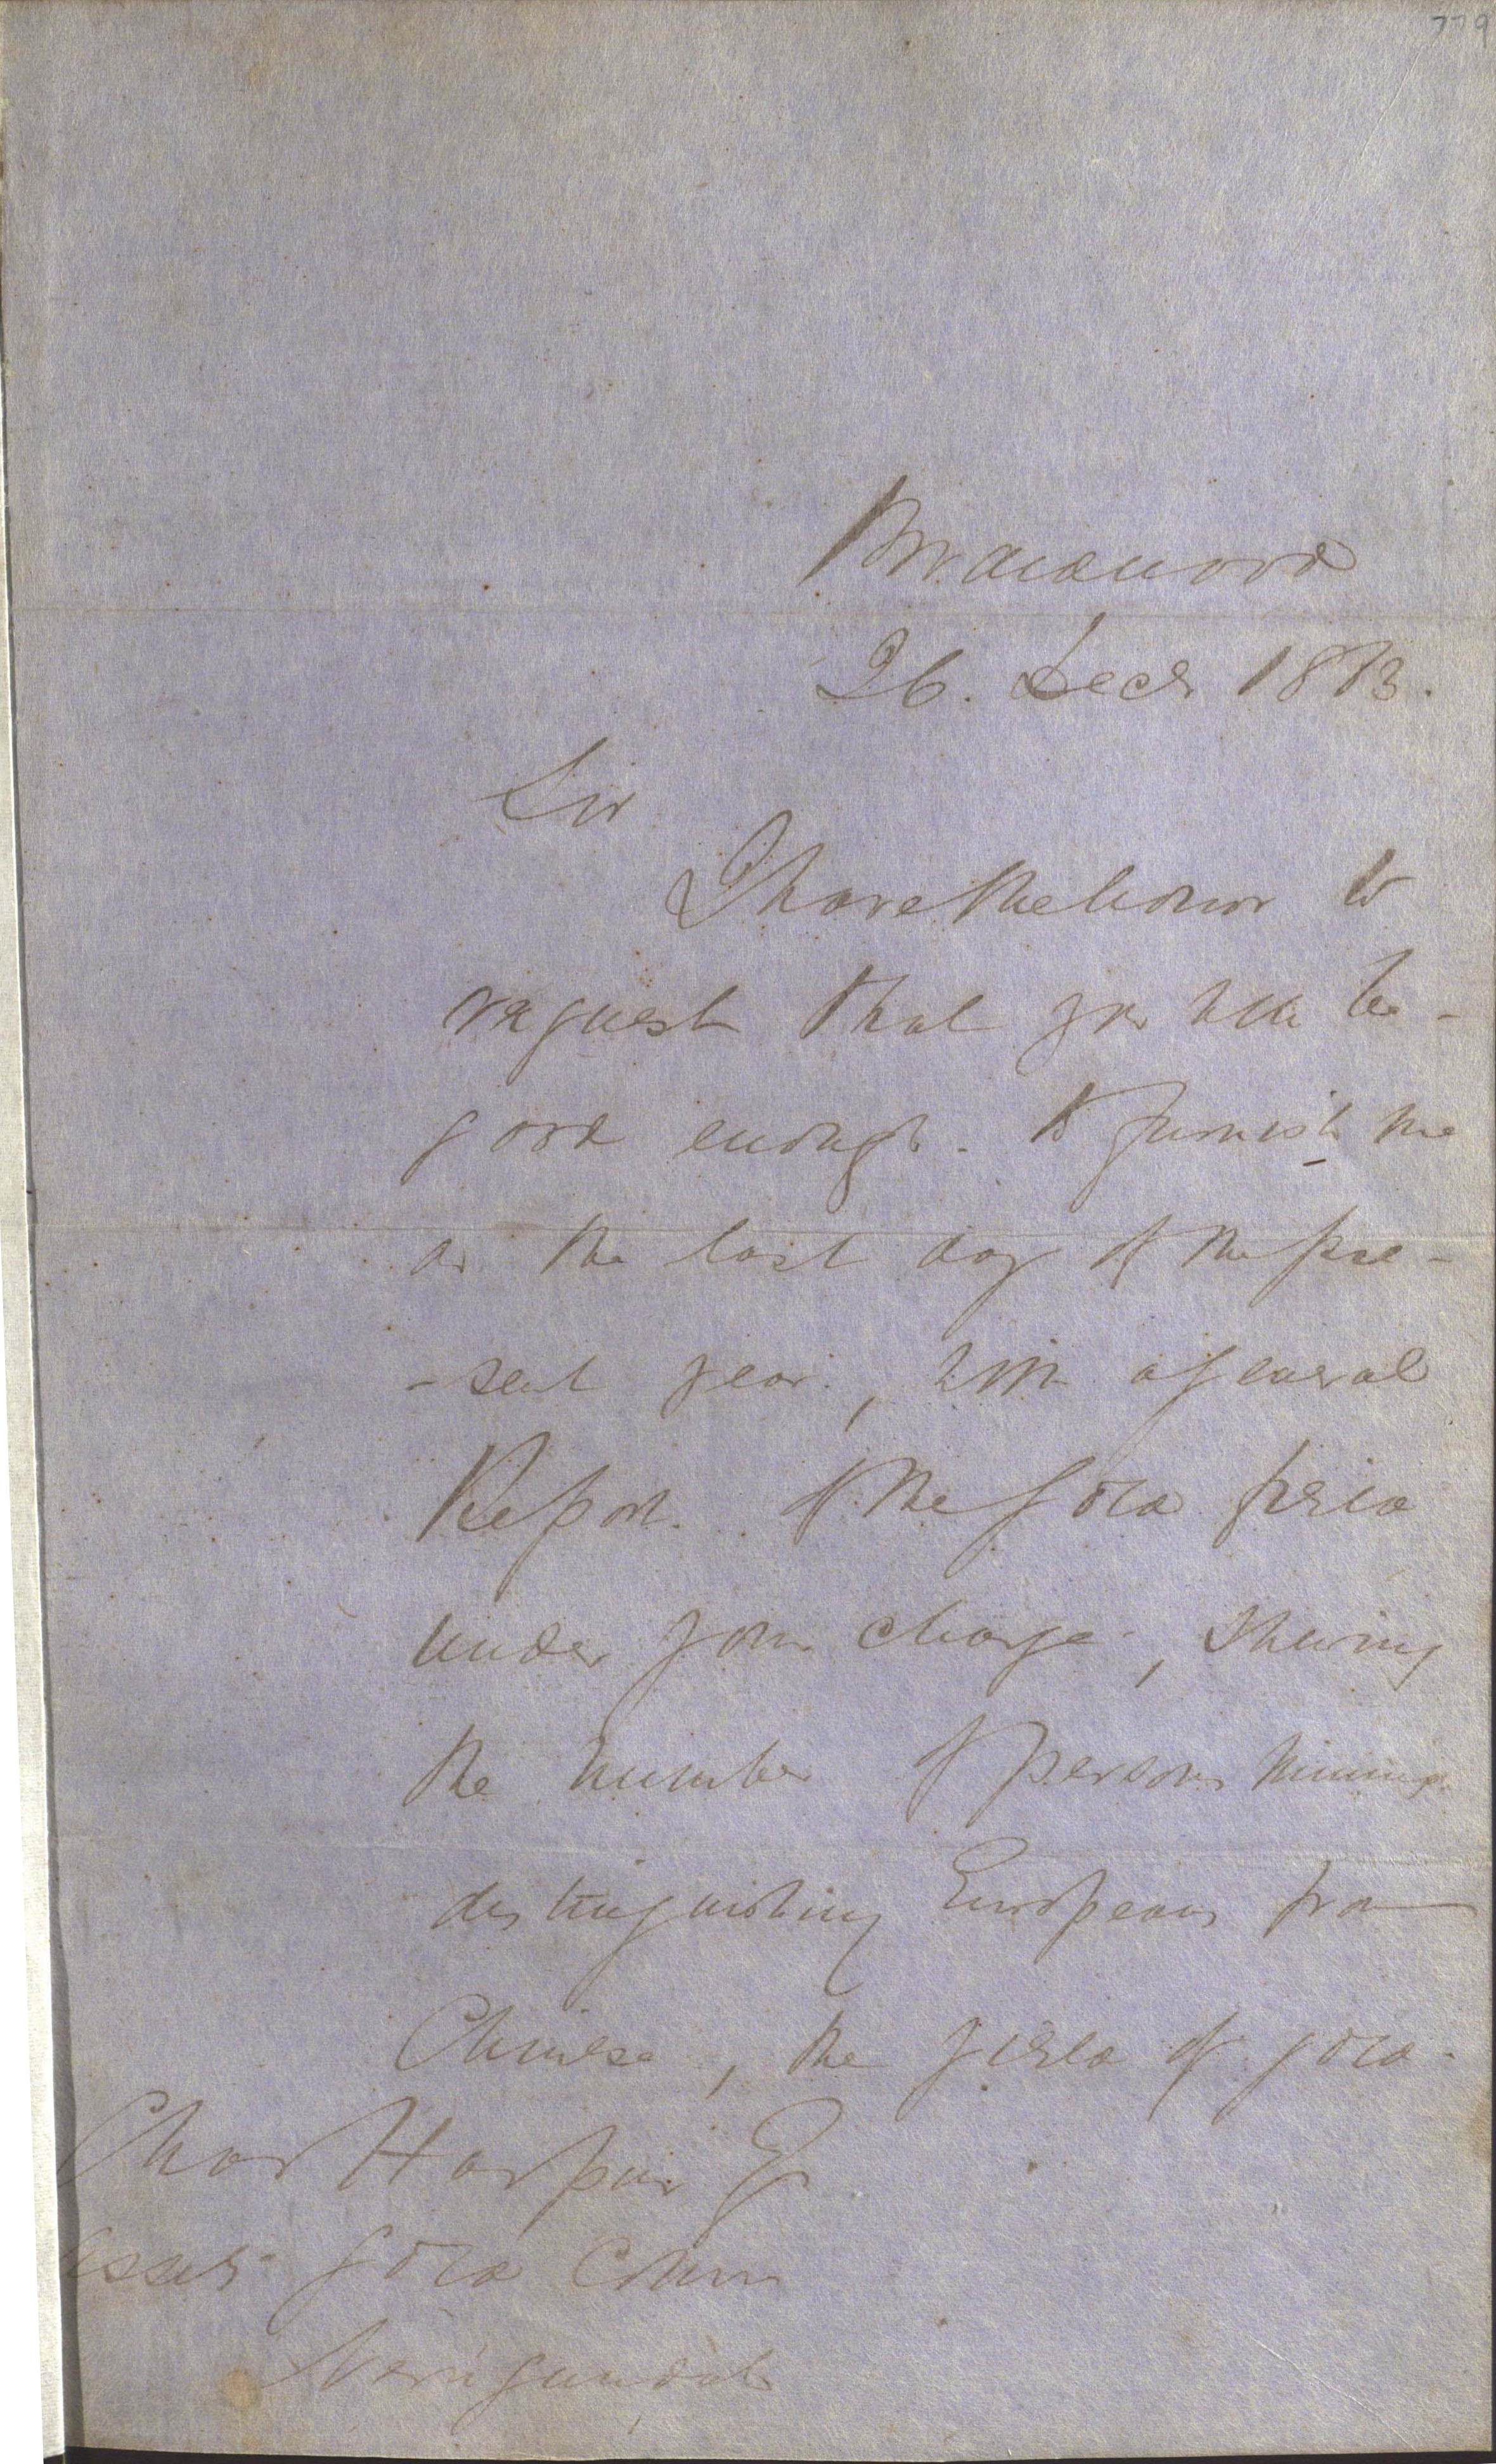 779
Braidwood
26. Decr 1863.
Sir
I have the honor to
request that you will be -
good enough. to furnish me
on the last day of the pre -
- sent year, with a general
Report. of the Gold field
under your charge, shewing
the number of persons mining
distinguishing Europeans from
Chinese, the yield of gold.
Chas Harpur Esq
Asst Gold Commr
Nerrigundah